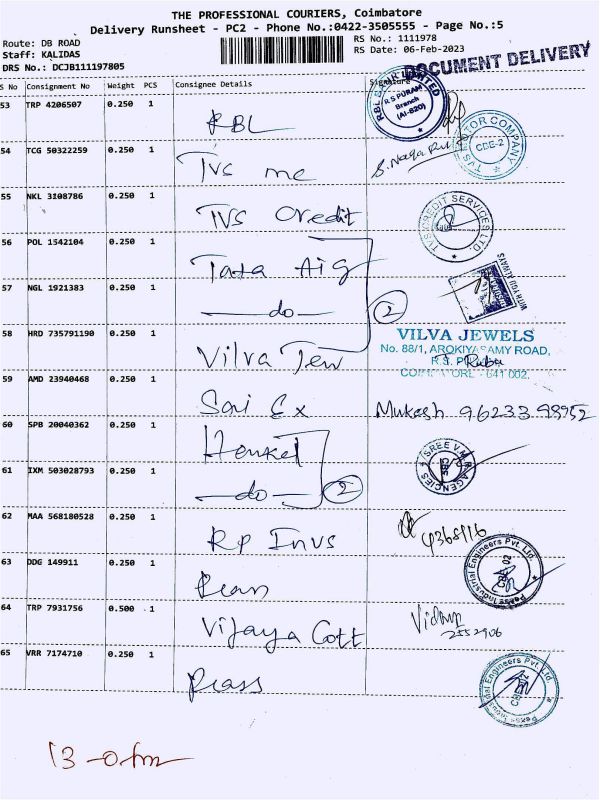 THE PROFESSIONAL COURIERS, Coimbatore
Delivery Runsheet - PC2 - Phone No.:0422-3505555 - Page No.:5
Route: DB ROAD
RS No.: 1111978
Staff: KALIDAS
RS Date: 06-Feb-2023
DRS No.: DCJB111197805
DOCUMENT DELIVERY
S No Consignment No Weight PCS Consignee Details Signature
53 TRP 4206507 0.250 1 RBL
RBL BANK LIMITED
R S PURAM
Branch
(AI-820)
54 TCG 50322259 0.250 1 Tvs me
S. Naga
TVS MOTOR COMPANY
CBE-2
55 NKL 3108786 0.250 1 TVS Credit
TVS CREDIT SERVICES LTD.
56 POL 1542104 0.250 1 Tata AIG
57 NGL 1921383 0.250 1 —do— 2
WITH YOU ALWAYS
58 HRD 735791190 0.250 1 Vilva Jew
VILVA JEWELS
No. 88/1, AROKIYASAMY ROAD,
R.S. P
COIMBATORE - 641 002.
59 AMD 23940468 0.250 1 Sai Ex Mukesh 9623398952
60 SPB 20040362 0.250 1 Henkel
SREE V.M.R AGENCIES
CBS
61 IXM 503028793 0.250 1 —do— 2
62 MAA 568180528 0.250 1 Rp Invs
63 DDG 149911 0.250 1
Peass Industrial Engineers Pvt. Ltd.
64 TRP 7931756 0.500 1 Vijaya Cott
2552906
65 VRR 7174710 0.250 1 Peass
Peass Industrial Engineers Pvt. Ltd.